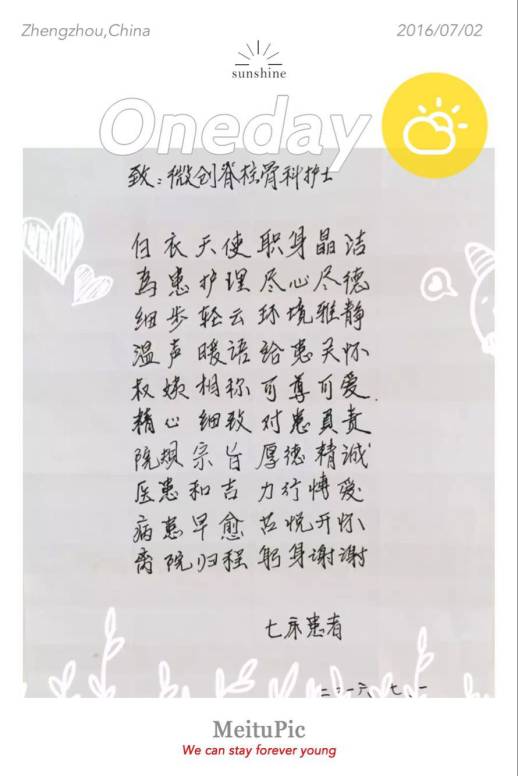 Zhengzhou,China
2016/07/02
sunshine
Oneday
致：微创脊柱骨科护士
白衣天使 职身晶洁
为患护理 尽心尽德
细步轻云 环境雅静
温声暖语 给患关怀
叔姨相称 可尊可爱
精心细致 对患负责
院规宗旨 厚德精诚
医患和吉 力行博爱
病患早愈 苦悦开怀
离院归程 躬身谢谢
七床患者
二〇一六 七 一
MeituPic
We can stay forever young